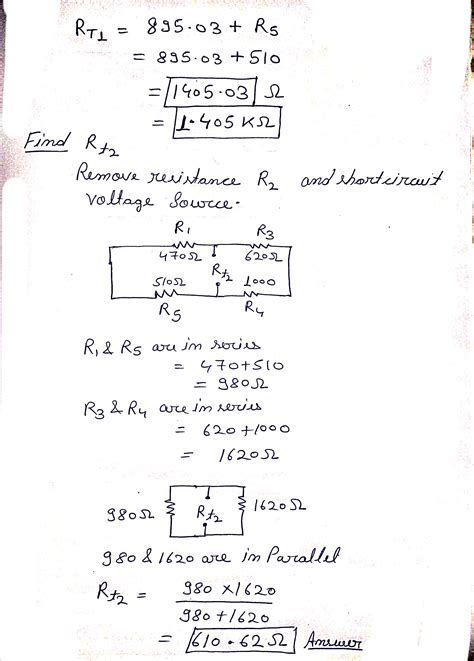 R_T1 = 895.03 + R5
= 895.03 + 510
= 1405.03 Ω
= 1.405 KΩ
Find R_t2
Remove resistance R2 and shortcircuit
voltage source.
R1 R3
470Ω 620Ω
R_t2
510Ω 1000
R5 R4
R1 & R5 are in series
= 470+510
= 980Ω
R3 & R4 are in series
= 620+1000
= 1620Ω
980Ω R_t2 1620Ω
980 & 1620 are in Parallel
R_t2 = 980 × 1620
980 + 1620
= 610.62Ω Answer